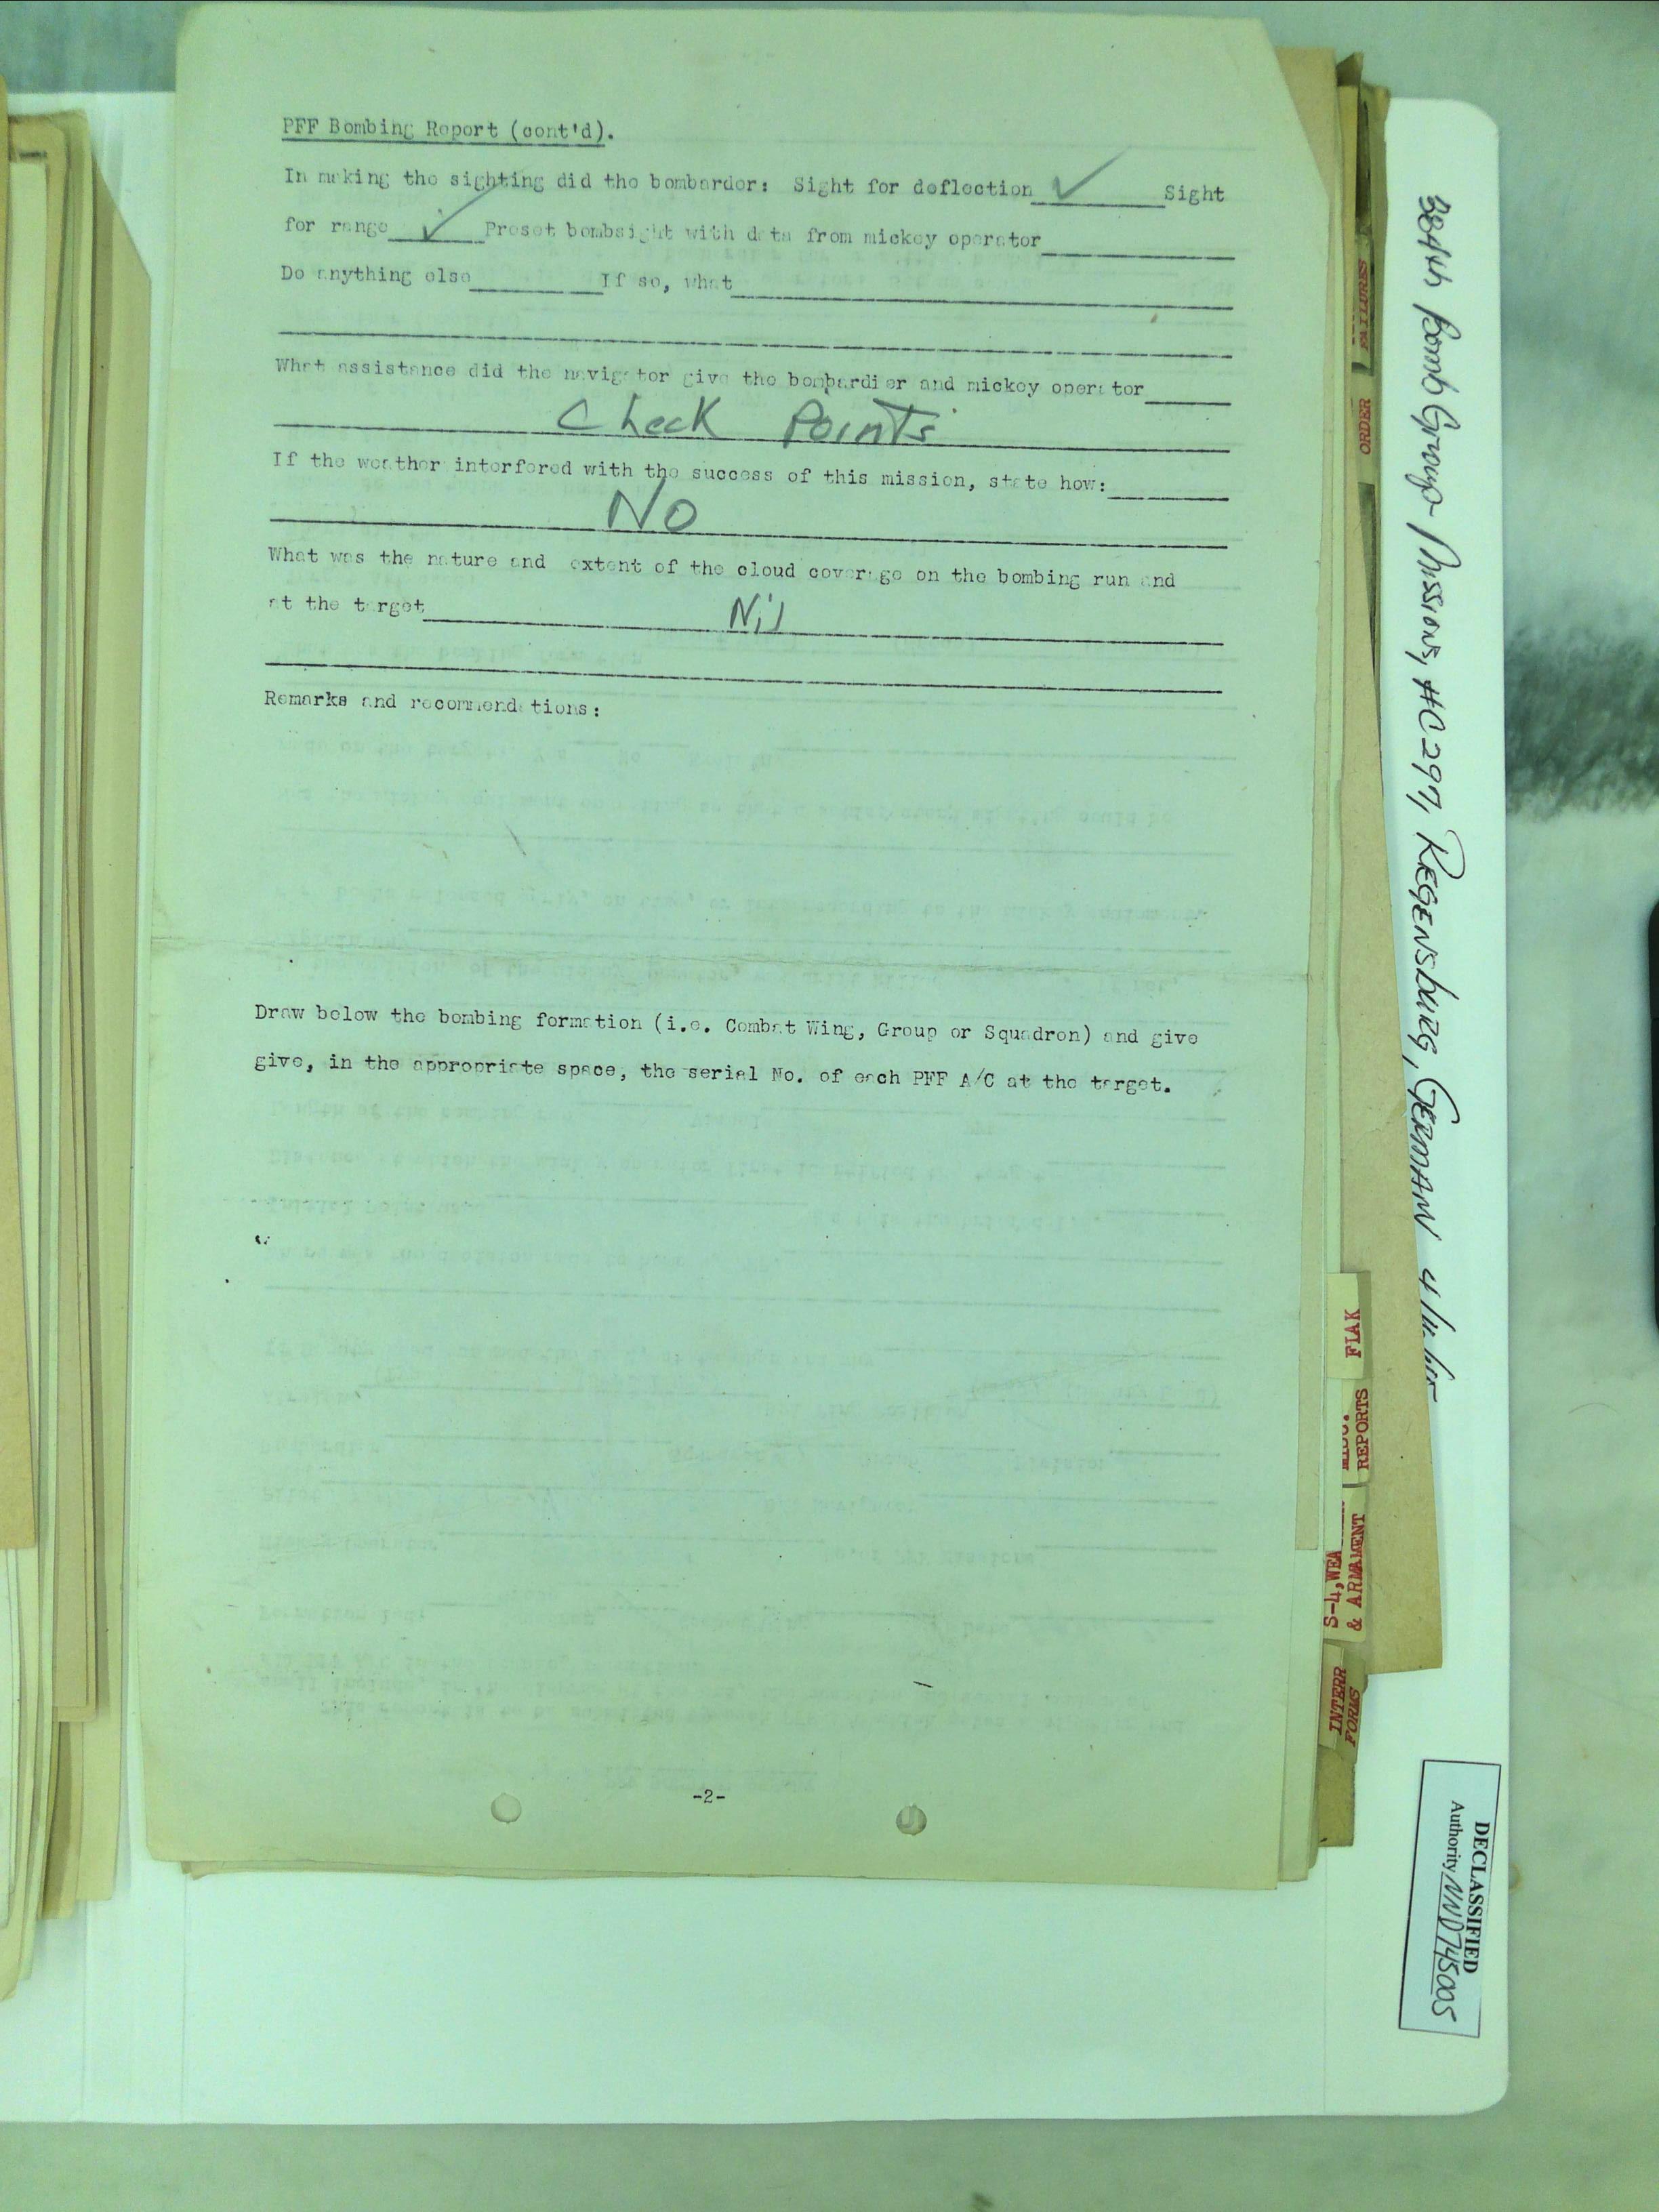 PFF Bombing Report (cont'd).
In making the sighting did the bombarder: Sight for deflection ✓ Sight
for range ✓ Preset bombsight with data from mickey operator
Do anything else If so, what
What assistance did the navigator give the bombardier and mickey operator
Check Points
If the weather interfered with the success of this mission, state how:
No
What was the nature and extent of the cloud coverage on the bombing run and
at the target Nil
Remarks and recommendations:
Draw below the bombing formation (i.e. Combat Wing, Group or Squadron) and give
give, in the appropriate space, the serial No. of each PFF A/C at the target.
-2-
FAILURES
ORDER
FLAK
MISC.
REPORTS
S-4, WEA
& ARMAMENT
INTERR
FORMS
384th Bomb Group Missions, #C297, REGENSBURG, GERMANY 4/11/45
DECLASSIFIED
Authority NND745005